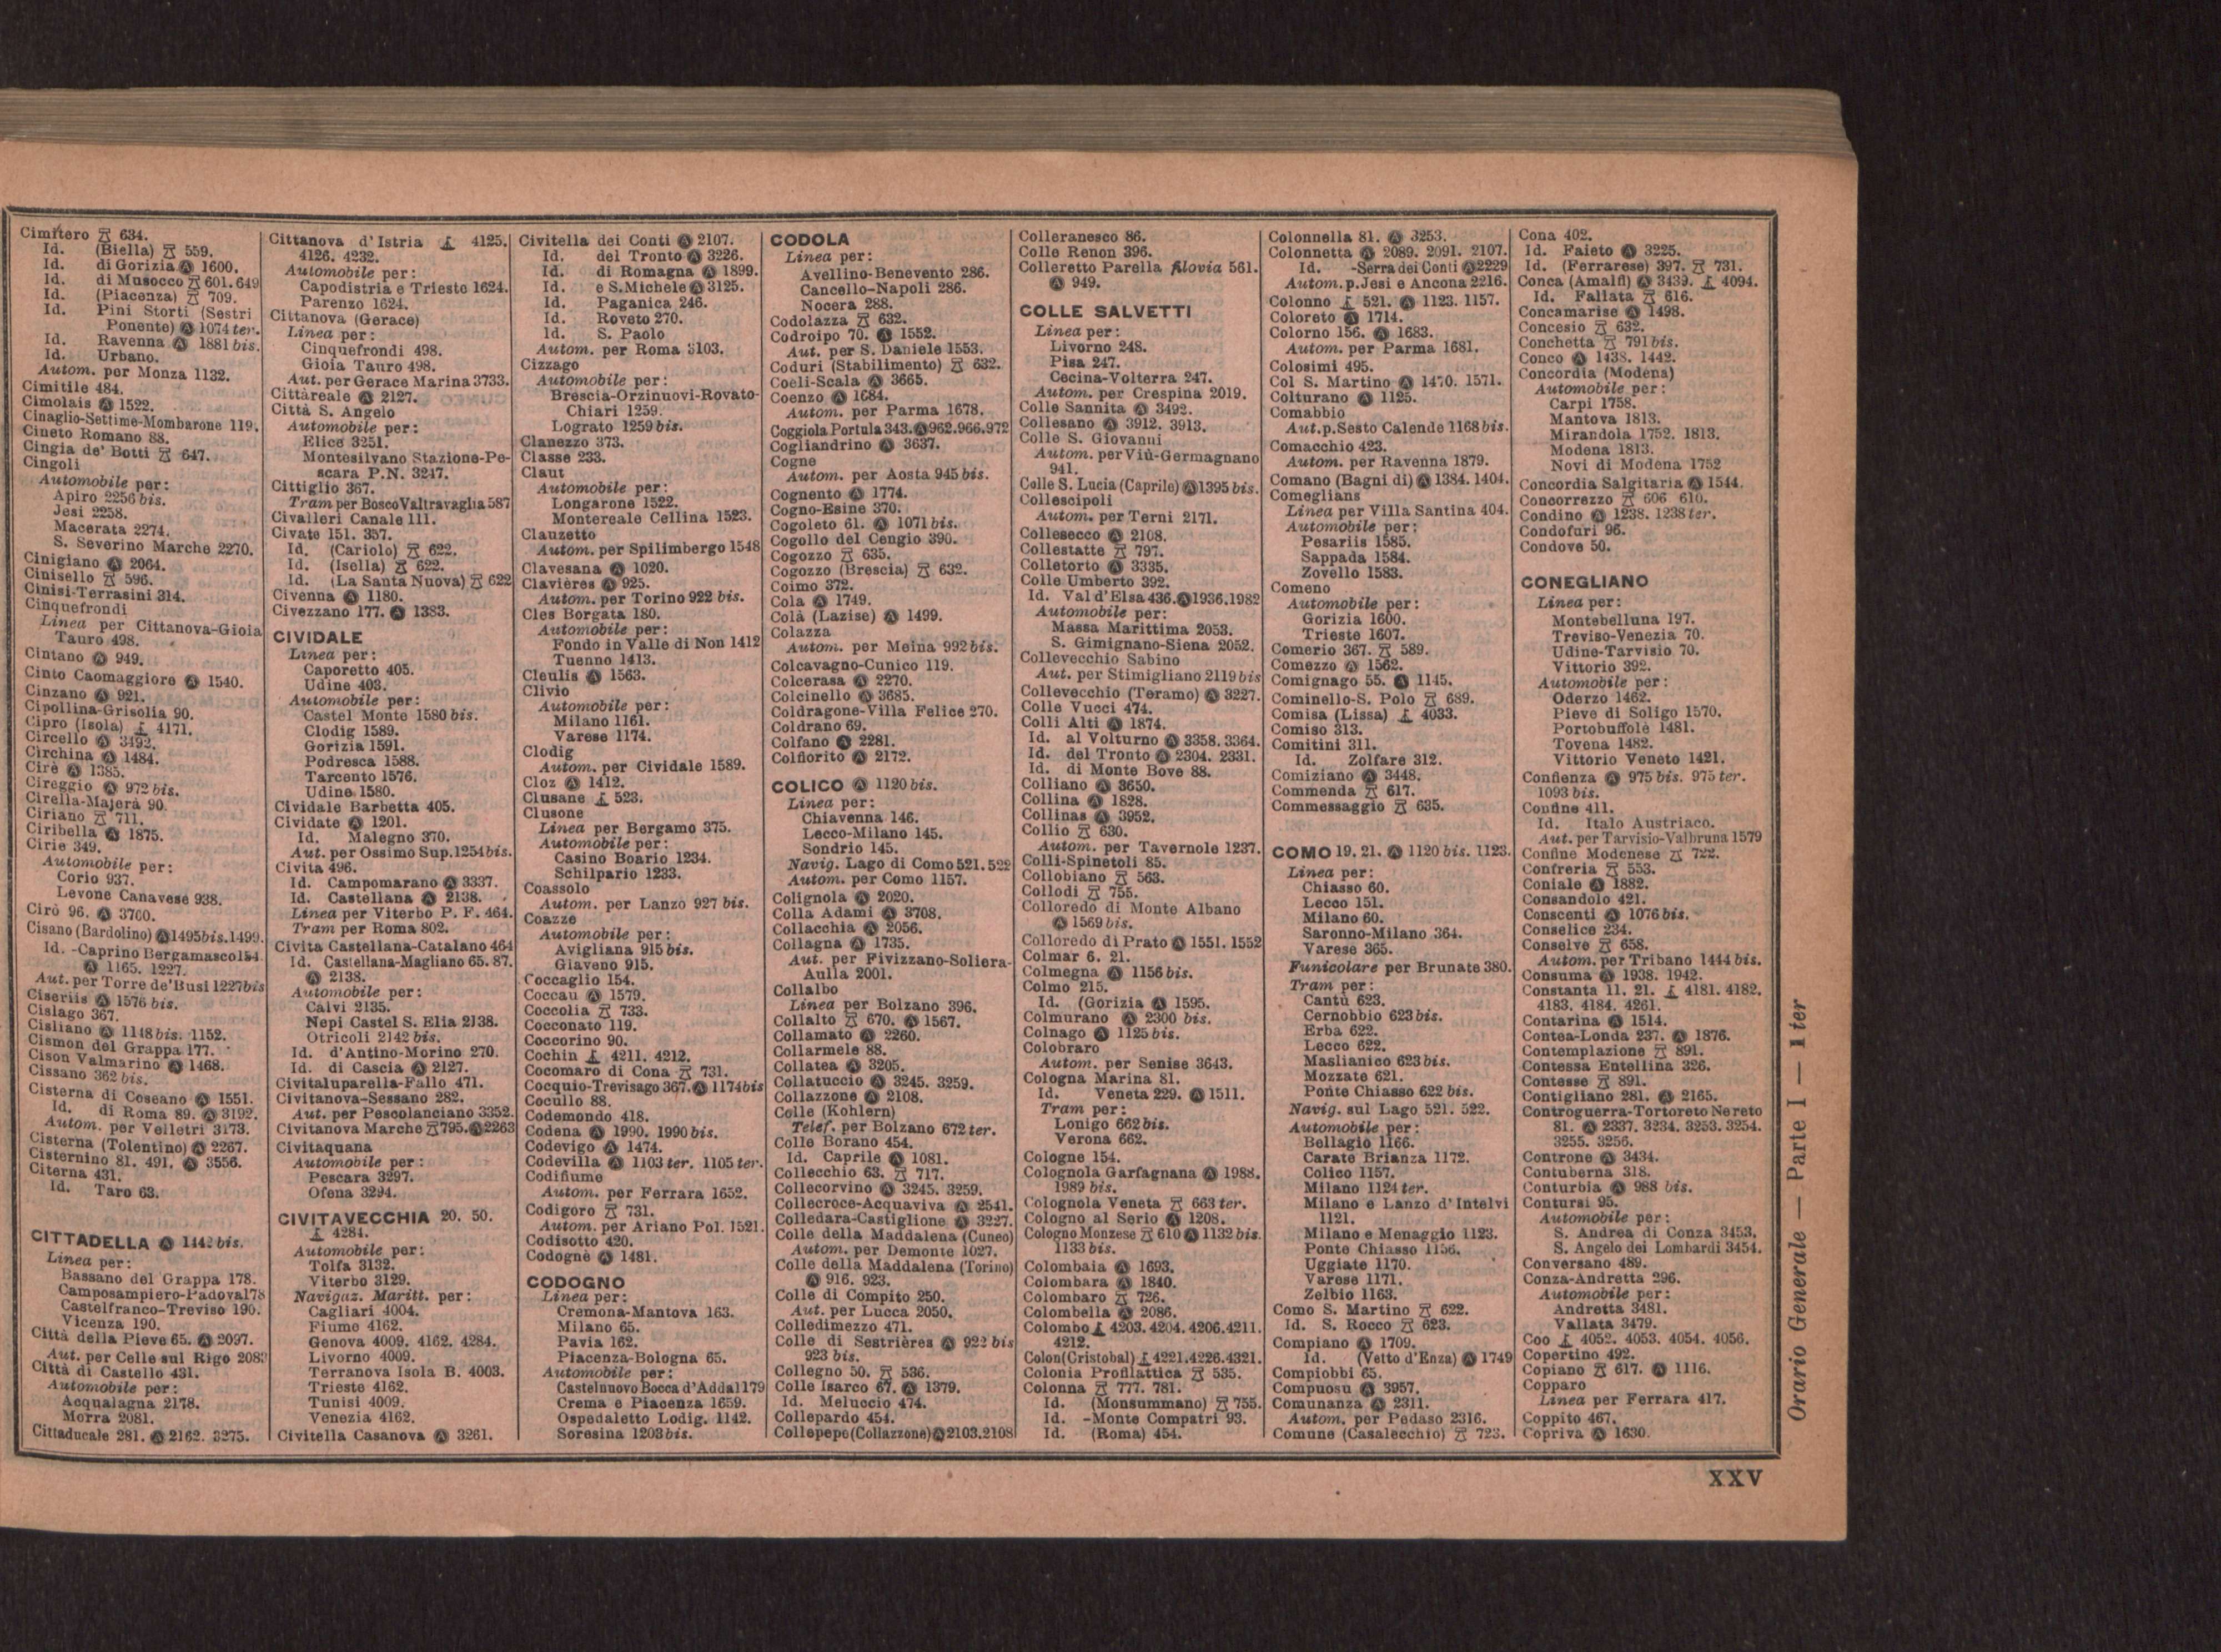 Cimitero 634.
Id. (Biella) 559.
Id. di Gorizia Ⓐ 1600.
Id. di Musocco 601. 649
Id. (Piacenza) 709.
Id. Pini Storti (Sestri
Ponente) Ⓐ 1074 ter.
Id. Ravenna Ⓐ 1881 bis.
Id. Urbano.
Autom. per Monza 1132.
Cimitile 484.
Cimolais Ⓐ 1522.
Cinaglio-Settime-Mombarone 119.
Cineto Romano 88.
Cingia de' Botti 647.
Cingoli
Automobile per:
Apiro 2256 bis.
Jesi 2258.
Macerata 2274.
S. Severino Marche 2270.
Cinigiano Ⓐ 2064.
Cinisello 596.
Cinisi-Terrasini 314.
Cinquefrondi
Linea per Cittanova-Gioia
Tauro 498.
Cintano Ⓐ 949.
Cinto Caomaggiore Ⓐ 1540.
Cinzano Ⓐ 921.
Cipollina-Grisolia 90.
Cipro (Isola) 4171.
Circello Ⓐ 3492.
Circhina Ⓐ 1484.
Cirè Ⓐ 1385.
Cireggio Ⓐ 972 bis.
Cirella-Majerà 90.
Ciriano 711.
Ciribella Ⓐ 1875.
Cirie 349.
Automobile per:
Corio 937.
Levone Canavese 938.
Cirò 96. Ⓐ 3760.
Cisano (Bardolino) Ⓐ 1495bis. 1499.
Id. -Caprino Bergamasco 154.
Ⓐ 1165. 1227.
Aut. per Torre de' Busi 1227 bis
Ciseriis Ⓐ 1576 bis.
Cislago 367.
Cisliano Ⓐ 1148 bis. 1152.
Cismon del Grappa 177.
Cison Valmarino Ⓐ 1468.
Cissano 362 bis.
Cisterna di Coseano Ⓐ 1551.
Id. di Roma 89. Ⓐ 3192.
Autom. per Velletri 3173.
Cisterna (Tolentino) Ⓐ 2267.
Cisternino 81. 491. Ⓐ 3556.
Citerna 431.
Id. Taro 63.
CITTADELLA Ⓐ 1442 bis.
Linea per:
Bassano del Grappa 178.
Camposampiero-Padova 178
Castelfranco-Treviso 190.
Vicenza 190.
Città della Pieve 65. Ⓐ 2097.
Aut. per Celle sul Rigo 208
Città di Castello 431.
Automobile per:
Acqualagna 2178.
Morra 2081.
Cittaducale 281. Ⓐ 2162. 3275.
Cittanova d'Istria 4125.
4126. 4232.
Automobile per:
Capodistria e Trieste 1624.
Parenzo 1624.
Cittanova (Gerace)
Linea per:
Cinquefrondi 498.
Gioia Tauro 498.
Aut. per Gerace Marina 3733.
Cittàreale Ⓐ 2127.
Città S. Angelo
Automobile per:
Elice 3251.
Montesilvano Stazione-Pe-
scara P.N. 3247.
Cittiglio 367.
Tram per Bosco Valtravaglia 587
Civalleri Canale 111.
Civate 151. 357.
Id. (Cariolo) 622.
Id. (Isella) 622.
Id. (La Santa Nuova) 622
Civenna Ⓐ 1180.
Civezzano 177. Ⓐ 1383.
CIVIDALE
Linea per:
Caporetto 405.
Udine 403.
Automobile per:
Castel Monte 1580 bis.
Clodig 1589.
Gorizia 1591.
Podresca 1588.
Tarcento 1576.
Udine 1580.
Cividale Barbetta 405.
Cividate Ⓐ 1201.
Id. Malegno 370.
Aut. per Ossimo Sup. 1254 bis.
Civita 496.
Id. Campomarano Ⓐ 3337.
Id. Castellana Ⓐ 2138.
Linea per Viterbo P. F. 464.
Tram per Roma 802.
Civita Castellana-Catalano 464
Id. Castellana-Magliano 65. 87.
Ⓐ 2138.
Automobile per:
Calvi 2135.
Nepi Castel S. Elia 2138.
Otricoli 2142 bis.
Id. d'Antino-Morino 270.
Id. di Cascia Ⓐ 2127.
Civitaluparella-Fallo 471.
Civitanova-Sessano 282.
Aut. per Pescolanciano 3352.
Civitanova Marche 795. Ⓐ 2263
Civitaquana
Automobile per:
Pescara 3297.
Ofena 3294.
CIVITAVECCHIA 20. 50.
4284.
Automobile per:
Tolfa 3132.
Viterbo 3129.
Navigaz. Maritt. per:
Cagliari 4004.
Fiume 4162.
Genova 4009. 4162. 4284.
Livorno 4009.
Terranova Isola B. 4003.
Trieste 4162.
Tunisi 4009.
Venezia 4162.
Civitella Casanova Ⓐ 3261.
Civitella dei Conti Ⓐ 2107.
Id. del Tronto Ⓐ 3226.
Id. di Romagna Ⓐ 1899.
Id. e S. Michele Ⓐ 3125.
Id. Paganica 246.
Id. Roveto 270.
Id. S. Paolo
Autom. per Roma 3103.
Cizzago
Automobile per:
Brescia-Orzinuovi-Rovato-
Chiari 1259.
Lograto 1259 bis.
Clanezzo 373.
Classe 233.
Claut
Automobile per:
Longarone 1522.
Montereale Cellina 1523.
Clauzetto
Autom. per Spilimbergo 1548
Clavesana Ⓐ 1020.
Clavières Ⓐ 925.
Autom. per Torino 922 bis.
Cles Borgata 180.
Automobile per:
Fondo in Valle di Non 1412
Tuenno 1413.
Cleulis Ⓐ 1563.
Clivio
Automobile per:
Milano 1161.
Varese 1174.
Clodig
Autom. per Cividale 1589.
Cloz Ⓐ 1412.
Clusane 523.
Clusone
Linea per Bergamo 375.
Automobile per:
Casino Boario 1234.
Schilpario 1233.
Coassolo
Autom. per Lanzo 927 bis.
Coazze
Automobile per:
Avigliana 915 bis.
Giaveno 915.
Coccaglio 154.
Coccau Ⓐ 1579.
Coccolia 733.
Cocconato 119.
Coccorino 90.
Cochin 4211. 4212.
Cocomaro di Cona 731.
Cocquio-Trevisago 367. Ⓐ 1174 bis
Cocullo 88.
Codemondo 418.
Codena Ⓐ 1990. 1990 bis.
Codevigo Ⓐ 1474.
Codevilla Ⓐ 1103 ter. 1105 ter.
Codifiume
Autom. per Ferrara 1652.
Codigoro 731.
Autom. per Ariano Pol. 1521.
Codisotto 420.
Codognè Ⓐ 1481.
CODOGNO
Linea per:
Cremona-Mantova 163.
Milano 65.
Pavia 162.
Piacenza-Bologna 65.
Automobile per:
Castelnuovo Bocca d'Adda 1179
Crema e Piacenza 1659.
Ospedaletto Lodig. 1142.
Soresina 1203 bis.
CODOLA
Linea per:
Avellino-Benevento 286.
Cancello-Napoli 286.
Nocera 288.
Codolazza 632.
Codroipo 70. Ⓐ 1552.
Aut. per S. Daniele 1553.
Coduri (Stabilimento) 632.
Coeli-Scala Ⓐ 3665.
Coenzo Ⓐ 1684.
Autom. per Parma 1678.
Coggiola Portula 343. Ⓐ 962. 966. 972
Cogliandrino Ⓐ 3637.
Cogne
Autom. per Aosta 945 bis.
Cognento Ⓐ 1774.
Cogno-Esine 370.
Cogoleto 61. Ⓐ 1071 bis.
Cogollo del Cengio 390.
Cogozzo 635.
Cogozzo (Brescia) 632.
Coimo 372.
Cola Ⓐ 1749.
Colà (Lazise) Ⓐ 1499.
Colazza
Autom. per Meina 992 bis.
Colcavagno-Cunico 119.
Colcerasa Ⓐ 2270.
Colcinello Ⓐ 3685.
Coldragone-Villa Felice 270.
Coldrano 69.
Colfano Ⓐ 2281.
Colfiorito Ⓐ 2172.
COLICO Ⓐ 1120 bis.
Linea per:
Chiavenna 146.
Lecco-Milano 145.
Sondrio 145.
Navig. Lago di Como 521. 522
Autom. per Como 1157.
Colignola Ⓐ 2020.
Colla Adami Ⓐ 3708.
Collacchia Ⓐ 2056.
Collagna Ⓐ 1735.
Aut. per Fivizzano-Soliera-
Aulla 2001.
Collalbo
Linea per Bolzano 396.
Collalto 670. Ⓐ 1567.
Collamato Ⓐ 2260.
Collarmele 88.
Collatea Ⓐ 3205.
Collatuccio Ⓐ 3245. 3259.
Collazzone Ⓐ 2108.
Colle (Kohlern)
Telef. per Bolzano 672 ter.
Colle Borano 454.
Id. Caprile Ⓐ 1081.
Collecchio 63. 717.
Collecorvino Ⓐ 3245. 3259.
Collecroce-Acquaviva Ⓐ 2541.
Colledara-Castiglione Ⓐ 3227.
Colle della Maddalena (Cuneo)
Autom. per Demonte 1027.
Colle della Maddalena (Torino)
Ⓐ 916. 923.
Colle di Compito 250.
Aut. per Lucca 2050.
Colledimezzo 471.
Colle di Sestrières Ⓐ 922 bis
923 bis.
Collegno 50. 536.
Colle Isarco 67. Ⓐ 1379.
Id. Meluccio 474.
Collepardo 454.
Collepepe (Collazzone) Ⓐ 2103. 2108
Colleranesco 86.
Colle Renon 396.
Colleretto Parella filovia 561.
Ⓐ 949.
COLLE SALVETTI
Linea per:
Livorno 248.
Pisa 247.
Cecina-Volterra 247.
Autom. per Crespina 2019.
Colle Sannita Ⓐ 3492.
Collesano Ⓐ 3912. 3913.
Colle S. Giovanni
Autom. per Viù-Germagnano
941.
Colle S. Lucia (Caprile) Ⓐ 1395 bis.
Collescipoli
Autom. per Terni 2171.
Collesecco Ⓐ 2108.
Collestatte 797.
Colletorto Ⓐ 3335.
Colle Umberto 392.
Id. Val d'Elsa 436. Ⓐ 1936. 1982
Automobile per:
Massa Marittima 2053.
S. Gimignano-Siena 2052.
Collevecchio Sabino
Aut. per Stimigliano 2119 bis
Collevecchio (Teramo) Ⓐ 3227.
Colle Vucci 474.
Colli Alti Ⓐ 1874.
Id. al Volturno Ⓐ 3358. 3364.
Id. del Tronto Ⓐ 2304. 2331.
Id. di Monte Bove 88.
Colliano Ⓐ 3650.
Collina Ⓐ 1828.
Collinas Ⓐ 3952.
Collio 630.
Autom. per Tavernole 1237.
Colli-Spinetoli 85.
Collobiano 563.
Collodi 755.
Colloredo di Monte Albano
Ⓐ 1569 bis.
Colloredo di Prato Ⓐ 1551. 1552
Colmar 6. 21.
Colmegna Ⓐ 1156 bis.
Colmo 215.
Id. (Gorizia Ⓐ 1595.
Colmurano Ⓐ 2300 bis.
Colnago Ⓐ 1125 bis.
Colobraro
Autom. per Senise 3643.
Cologna Marina 81.
Id. Veneta 229. Ⓐ 1511.
Tram per:
Lonigo 662 bis.
Verona 662.
Cologne 154.
Colognola Garfagnana Ⓐ 1988.
1989 bis.
Colognola Veneta 663 ter.
Cologno al Serio Ⓐ 1208.
Cologno Monzese 610 Ⓐ 1132 bis.
1133 bis.
Colombaia Ⓐ 1693.
Colombara Ⓐ 1840.
Colombaro 726.
Colombella Ⓐ 2086.
Colombo 4203. 4204. 4206. 4211.
4212.
Colon (Cristobal) 4221. 4226. 4321.
Colonia Profilattica 535.
Colonna 777. 781.
Id. (Monsummano) 755.
Id. -Monte Compatri 93.
Id. (Roma) 454.
Colonnella 81. Ⓐ 3253.
Colonnetta Ⓐ 2089. 2091. 2107.
Id. -Serra dei Conti Ⓐ 2229
Autom. p. Jesi e Ancona 2216.
Colonno 521. Ⓐ 1123. 1157.
Coloreto Ⓐ 1714.
Colorno 156. Ⓐ 1683.
Autom. per Parma 1681.
Colosimi 495.
Col S. Martino Ⓐ 1470. 1571.
Colturano Ⓐ 1125.
Comabbio
Aut. p. Sesto Calende 1168 bis.
Comacchio 423.
Autom. per Ravenna 1879.
Comano (Bagni di) Ⓐ 1384. 1404.
Comeglians
Linea per Villa Santina 404.
Automobile per:
Pesariis 1585.
Sappada 1584.
Zovello 1583.
Comeno
Automobile per:
Gorizia 1600.
Trieste 1607.
Comerio 367. 589.
Comezzo Ⓐ 1562.
Comignago 55. Ⓐ 1145.
Cominello-S. Polo 689.
Comisa (Lissa) 4033.
Comiso 313.
Comitini 311.
Id. Zolfare 312.
Comiziano Ⓐ 3448.
Commenda 617.
Commessaggio 635.
COMO 19. 21. Ⓐ 1120 bis. 1123.
Linea per:
Chiasso 60.
Lecco 151.
Milano 60.
Saronno-Milano 364.
Varese 365.
Funicolare per Brunate 380.
Tram per:
Cantù 623.
Cernobbio 623 bis.
Erba 622.
Lecco 622.
Maslianico 623 bis.
Mozzate 621.
Ponte Chiasso 622 bis.
Navig. sul Lago 521. 522.
Automobile per:
Bellagio 1166.
Carate Brianza 1172.
Colico 1157.
Milano 1124 ter.
Milano e Lanzo d'Intelvi
1121.
Milano e Menaggio 1123.
Ponte Chiasso 1156.
Uggiate 1170.
Varese 1171.
Zelbio 1163.
Como S. Martino 622.
Id. S. Rocco 623.
Compiano Ⓐ 1709.
Id. (Vetto d'Enza) Ⓐ 1749
Compiobbi 65.
Compuosu Ⓐ 3957.
Comunanza Ⓐ 2311.
Autom. per Pedaso 2316.
Comune (Casalecchio) 723.
Cona 402.
Id. Faieto Ⓐ 3225.
Id. (Ferrarese) 397. 731.
Conca (Amalfi) Ⓐ 3439. 4094.
Id. Fallata 616.
Concamarise Ⓐ 1498.
Concesio 632.
Conchetta 791 bis.
Conco Ⓐ 1438. 1442.
Concordia (Modena)
Automobile per:
Carpi 1758.
Mantova 1813.
Mirandola 1752. 1813.
Modena 1813.
Novi di Modena 1752
Concordia Salgitaria Ⓐ 1544.
Concorrezzo 606 610.
Condino Ⓐ 1238. 1238 ter.
Condofuri 96.
Condove 50.
CONEGLIANO
Linea per:
Montebelluna 197.
Treviso-Venezia 70.
Udine-Tarvisio 70.
Vittorio 392.
Automobile per:
Oderzo 1462.
Pieve di Soligo 1570.
Portobuffolè 1481.
Tovena 1482.
Vittorio Veneto 1421.
Confienza Ⓐ 975 bis. 975 ter.
1093 bis.
Confine 411.
Id. Italo Austriaco.
Aut. per Tarvisio-Valbruna 1579
Confine Modenese 722.
Confreria 553.
Coniale Ⓐ 1882.
Consandolo 421.
Conscenti Ⓐ 1076 bis.
Conselice 234.
Conselve 658.
Autom. per Tribano 1444 bis.
Consuma Ⓐ 1938. 1942.
Constanta 11. 21. 4181. 4182.
4183. 4184. 4261.
Contarina Ⓐ 1514.
Contea-Londa 237. Ⓐ 1876.
Contemplazione 891.
Contessa Entellina 326.
Contesse 891.
Contigliano 281. Ⓐ 2165.
Controguerra-Tortoreto Nereto
81. Ⓐ 2337. 3234. 3253. 3254.
3255. 3256.
Controne Ⓐ 3434.
Contuberna 318.
Conturbia Ⓐ 988 bis.
Contursi 95.
Automobile per:
S. Andrea di Conza 3453.
S. Angelo dei Lombardi 3454.
Conversano 489.
Conza-Andretta 296.
Automobile per:
Andretta 3481.
Vallata 3479.
Coo 4052. 4053. 4054. 4056.
Copertino 492.
Copiano 617. Ⓐ 1116.
Copparo
Linea per Ferrara 417.
Coppito 467.
Copriva Ⓐ 1630.
Orario Generale — Parte I — 1 ter
XXV